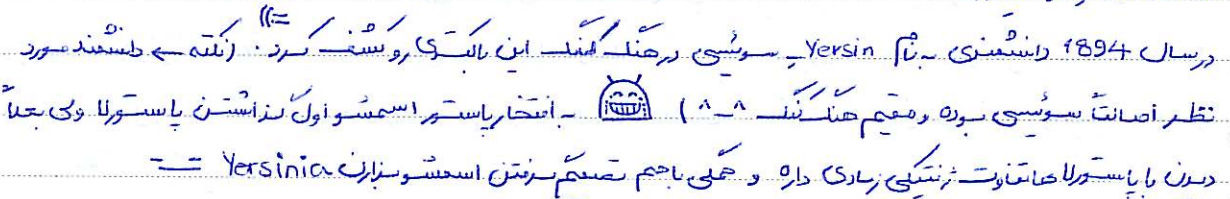 در سال 1894 دانشمندی به نام Yersin سوئیسی در هنگ کنگ این باکتری رو کشف کرد. (نکته ← دانشمند مورد
نظر اصالتاً سوئیسی بوده و مقیم هنگ کنگ ^_^ ) به افتخار پاستور اسمشو اول گذاشتن پاستورلا ولی بعداً
دیدن با پاستورلاها تفاوت ژنتیکی زیادی داره و همگی باهم تصمیم گرفتن اسمشو بزارن Yersinia